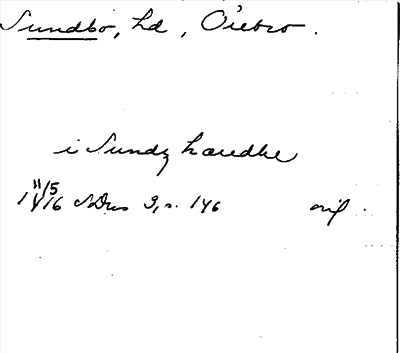 Sundbo, hd, Örebro.
i Sundz haredhe
11/5
1416 SDns 3, s. 146 orig.